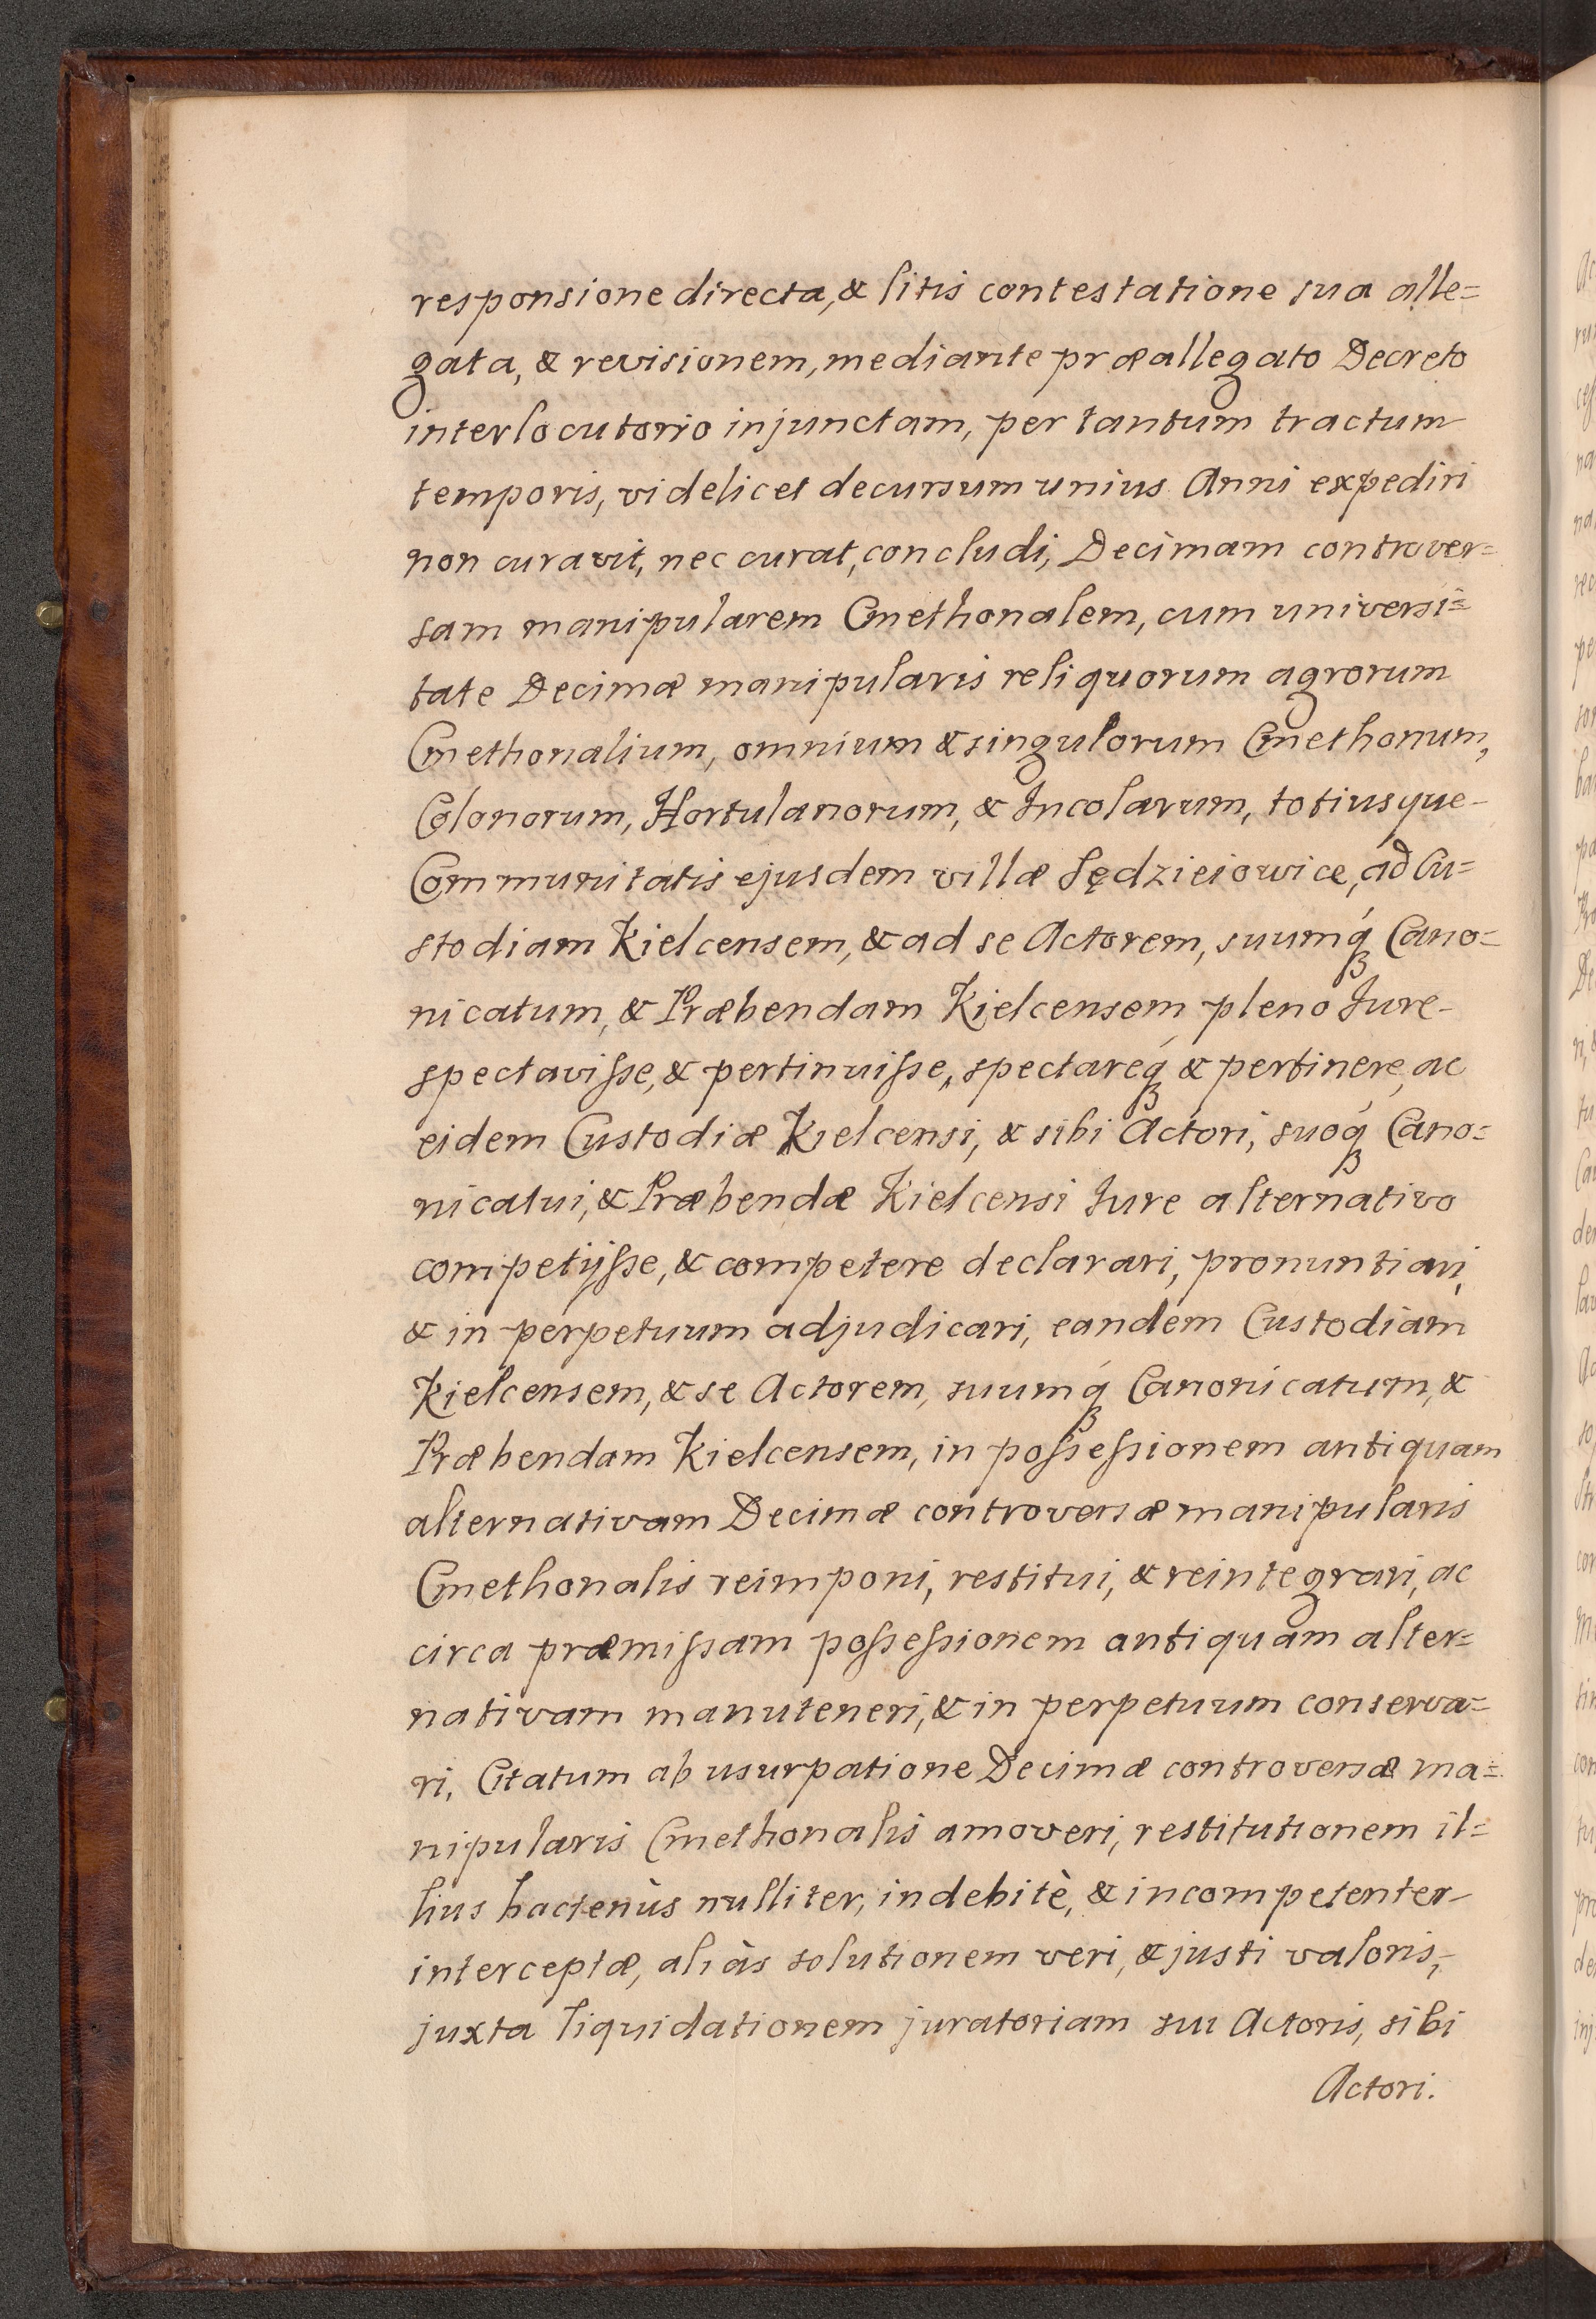 responsione directa, & litis contestatione sua alle=
gata, & revisionem, mediante præallegato Decreto
interlocutorio injunctam, per tantum tractum
temporis, videlicet decursum unius Anni expediri
non curavit, nec curat, concludi, Decimam controver=
sam manipularem Cmethonalem, cum universi=
tate Decimæ manipularis reliquorum agrorum
Cmethonalium, omnium & singulorum Cmethonum,
Colonorum, Hortulanorum, & Incolarum, totiusque-
Communitatis ejusdem villæ Sędzieiowice, ad Cu=
stodiam Kielcensem, & ad se Actorem, suumq́ꝫ Cano=
nicatum, & Præbendam Kielcensem pleno Jure-
spectavisse, & pertinuisse, spectareq́ꝫ & pertinere, ac
eidem Custodiæ Kielcensi, & sibi Actori, suoq́ꝫ Cano=
nicatui, & Præbendæ Kielcensi Jure alternativo
competijsse, & competere declarari, pronuntiari,
& in perpetuum adjudicari, eandem Custodiam
Kielcensem, & se Actorem, suumq́ꝫ Canonicatum, &
Præbendam Kielcensem, in possessionem antiquam
alternativam Decimæ controversæ manipularis
Cmethonalis reimponi, restitui, & reintegrari, ac
circa præmissam possessionem antiquam alter=
nativam manuteneri, & in perpetuum conserva=
ri, Citatum ab usurpatione Decimæ controversæ ma=
nipularis Cmethonalis amoveri, restitutionem il=
lius hactenùs nulliter, indebitè, & incompetenter-
interceptæ, aliàs solutionem veri, & justi valoris,-
juxta liquidationem juratoriam sui Actoris, sibi
Actori.